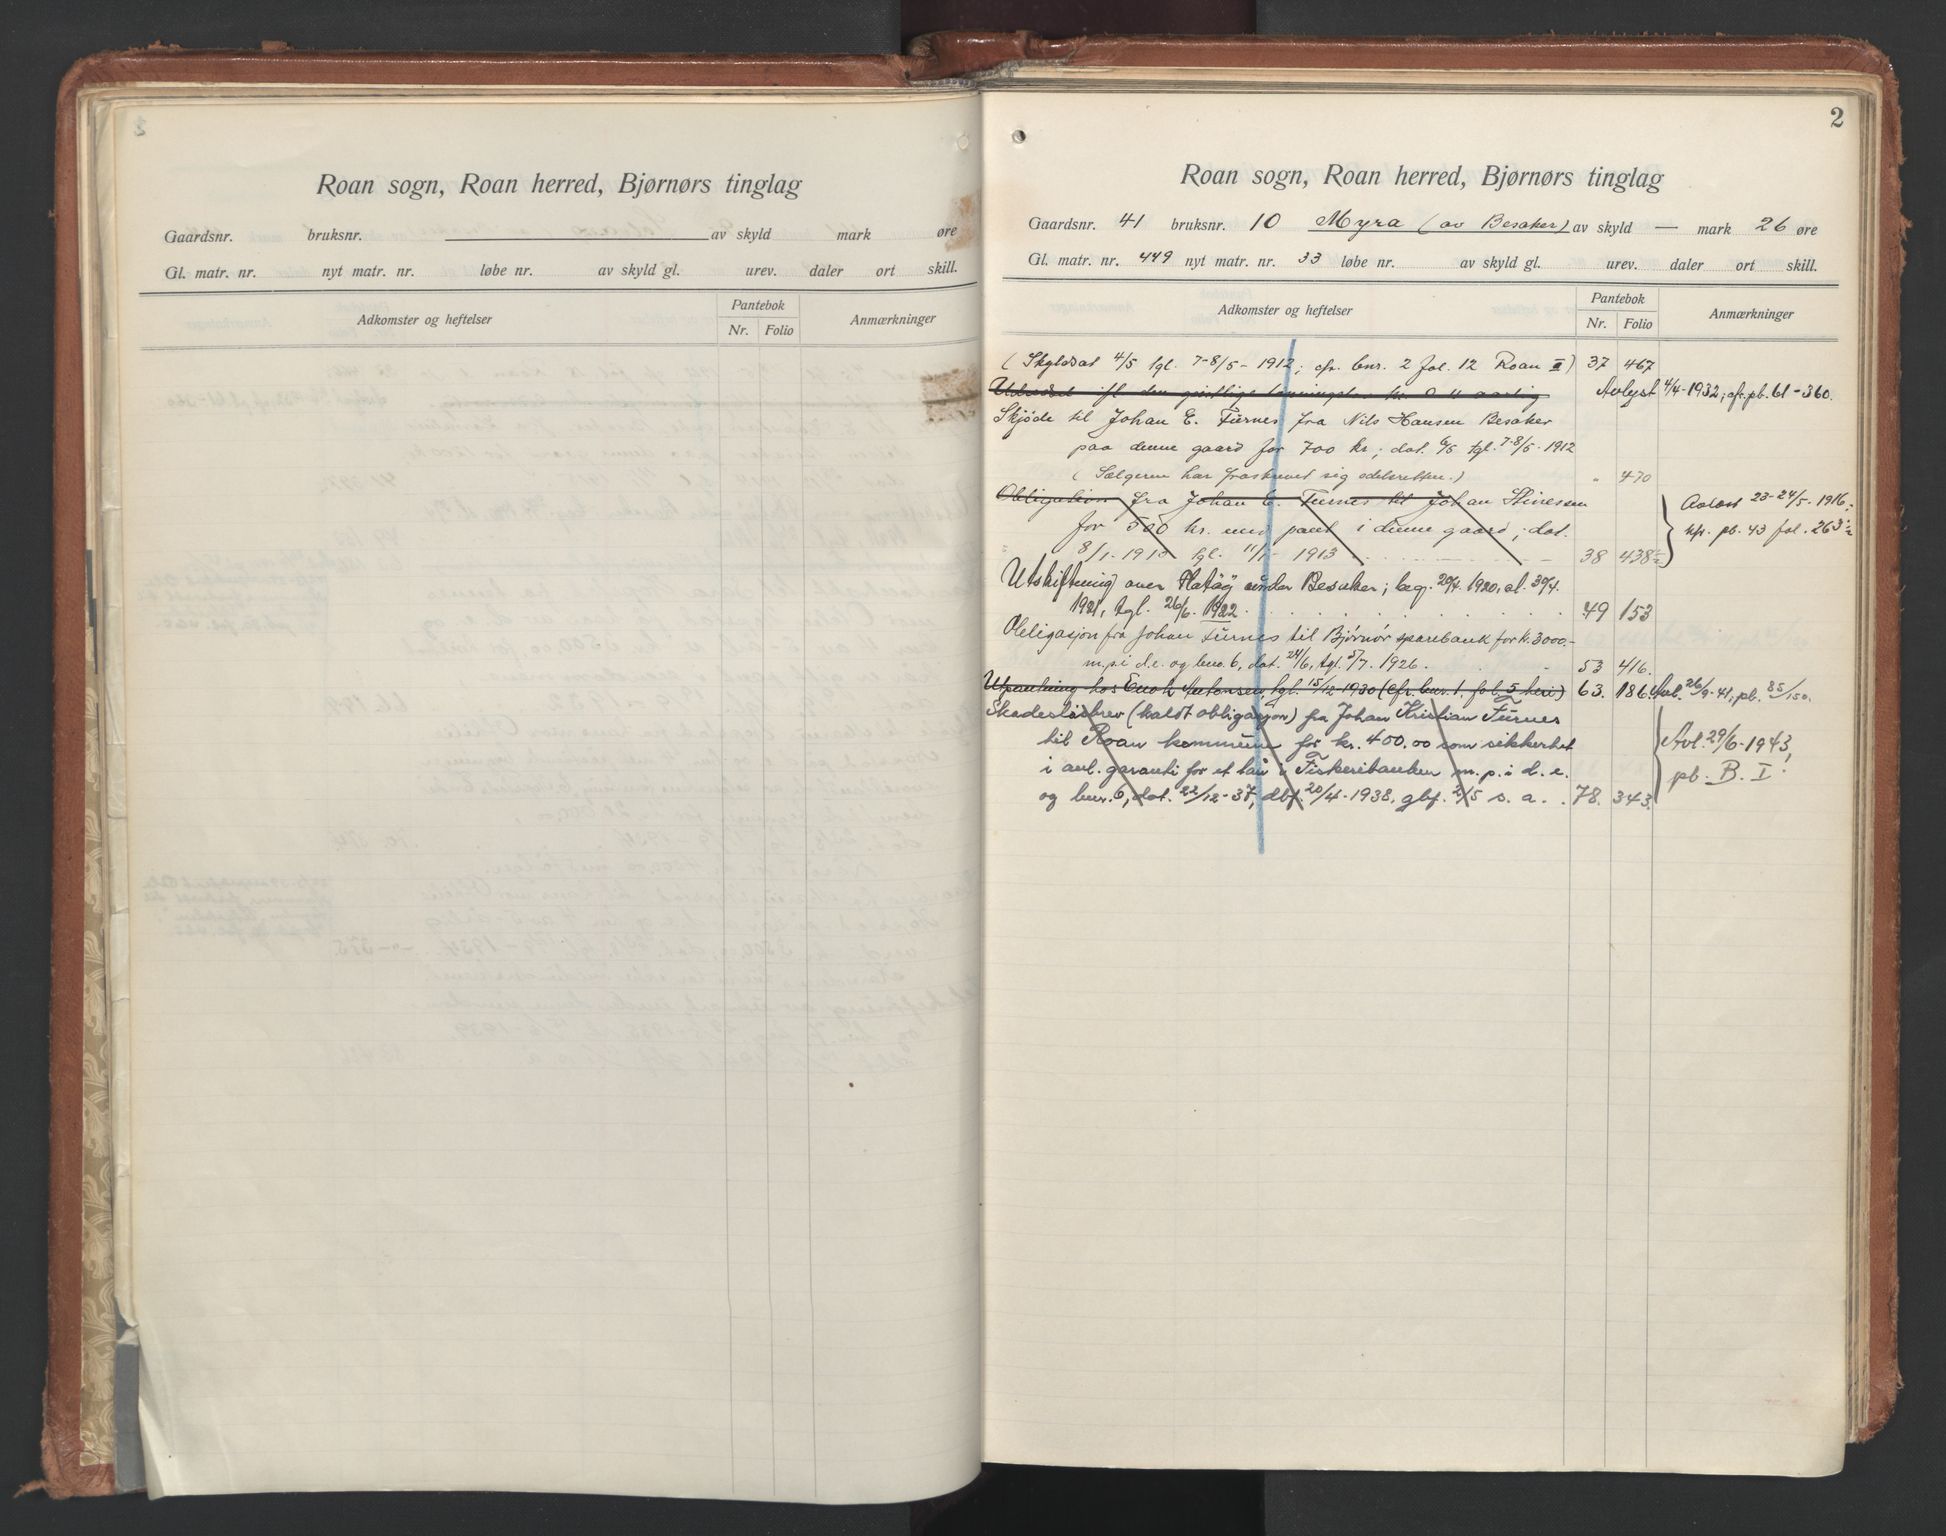 Roan sogn, Roan herred, Bjørnørs tinglag
Gaardsnr. bruksnr. av skyld mark øre
Gl. matr. nr. nyt matr. nr. løbe nr. av skyld gl. urev. daler ort skill.
Adkomster og heftelser Pantebok Anmærkninger
Nr. Folio
2
Roan sogn, Roan herred, Bjørnørs tinglag
Gaardsnr. 41 bruksnr. 10 Myra (av Besaker) av skyld — mark 26 øre
Gl. matr. nr. 449 nyt matr. nr. 33 løbe nr. av skyld gl. urev. daler ort skill.
Adkomster og heftelser Pantebok Anmærkninger
Nr. Folio
(Skyldsat 4/5 tgl. 7-8/5 - 1912; cfr. bnr. 2 fol. 12 Roan II) 37 467
Avlyst 4/4-1932; cfr. pb. 61-360.
Skjøde til Johan E. Furnes fra Nils Hansen Besaker
paa denne gaard for 700 kr; dat. 6/5 tgl. 7-8/5-1912
(Sælgeren har fraskrevet sig odelsretten.) " 470
Obligation fra Johan E. Furnes til Johan Stinesen
for 500 kr. med pant i denne gaard; dat.
8/1-1913 tgl. 11/1-1913 38 438
23-24/5-1916
pb. 43 fol. 263
Utskiftning over Flatøy under Besaker; beg. 20/4 1920, sl. 30/4
1921, tgl. 26/6 1922. 49 153
Obligasjon fra Johan Furnes til Bjørnør sparebank for kr. 3000.-
m.p.i d.e. og bnr. 6, dat. 24/6, tgl. 5/7. 1926. 53 416.
Utpantning hos Enok Antonsen, tgl. 15/12-1930 (cfr. bnr. 1, fol. 5 heri) 63. 186. Avl. 26/9-41, pb. 85/150.
Skadesløsbrev (kaldt obligasjon) fra Johan Kristian Furnes
til Roan kommune for kr. 400.00 som sikkerhet
i anl. garanti for et lån i Fiskeribanken m.p.i d.e.
og bnr. 6, dat. 22/12-37, dbf. 20/4-1938, gbf. 2/5 s. a. 78. 343.
Avl. 29/6-1943,
pb. B. I.